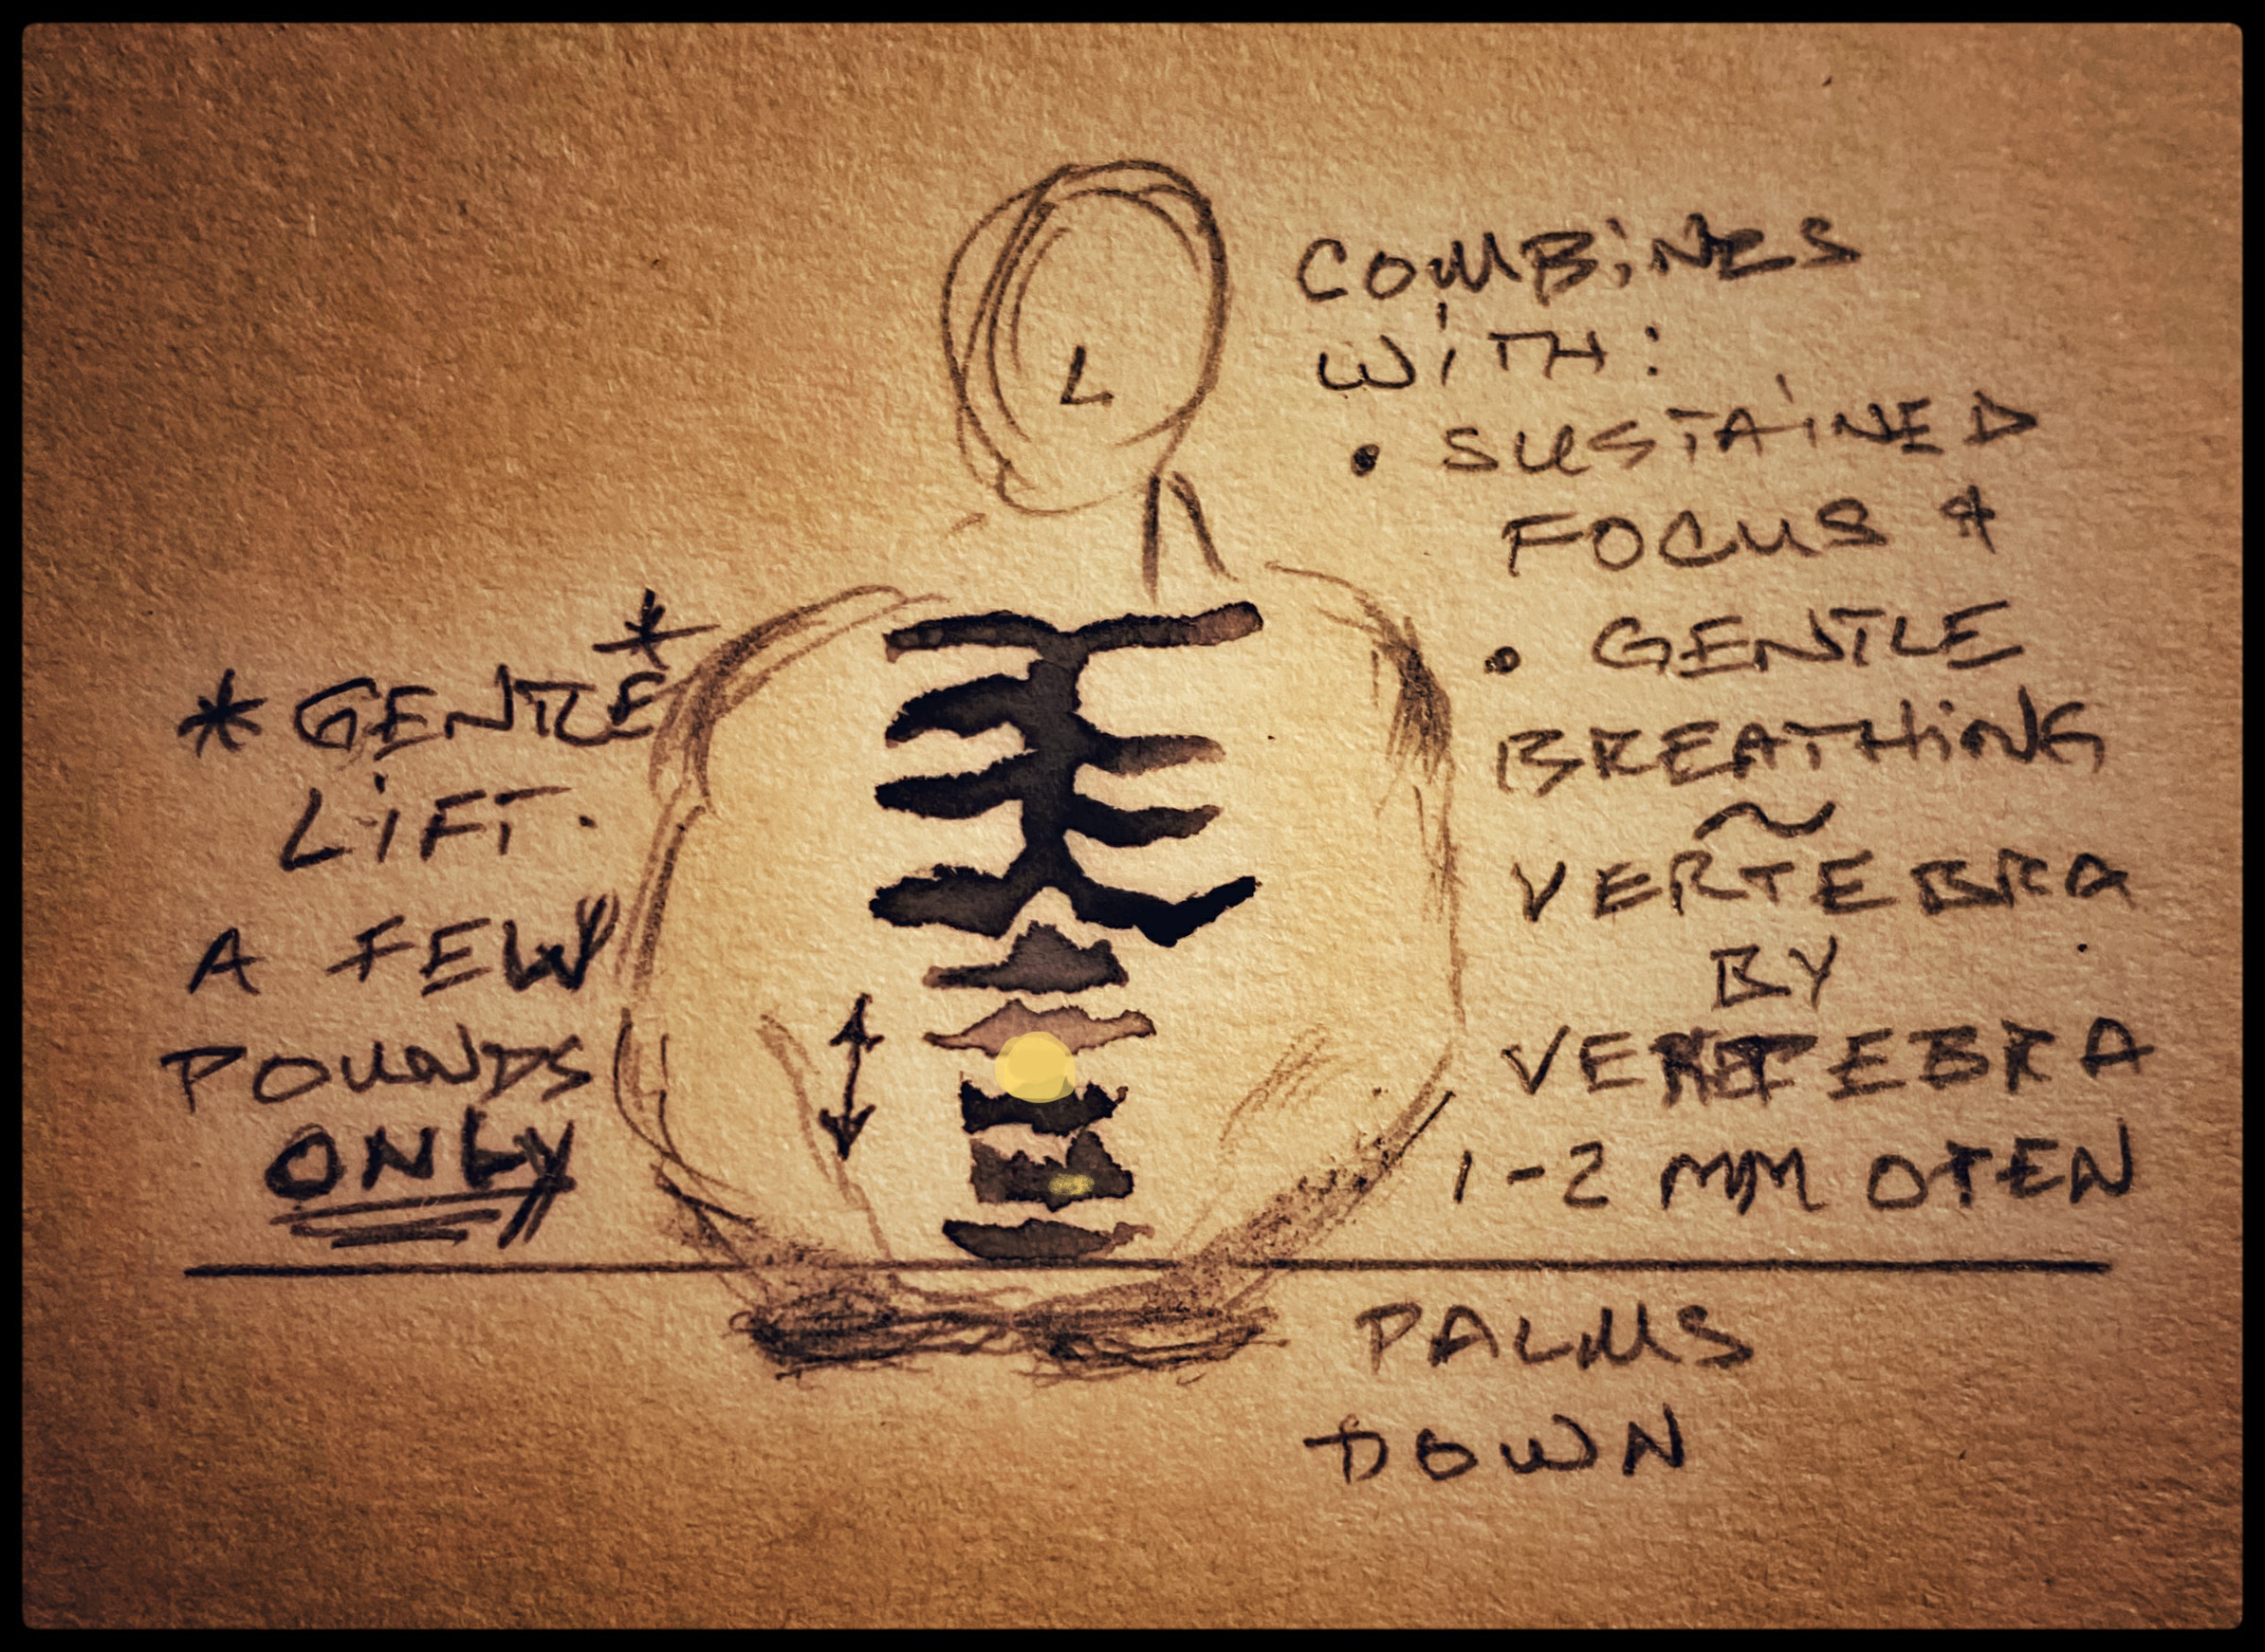 * GENTLE *
LIFT.
A FEW
POUNDS
ONLY
COMBINES
WITH:
• SUSTAINED
FOCUS &
• GENTLE
BREATHING
~
VERTEBRA
BY
VERTEBRA
1-2 MM OPEN
PALMS
DOWN